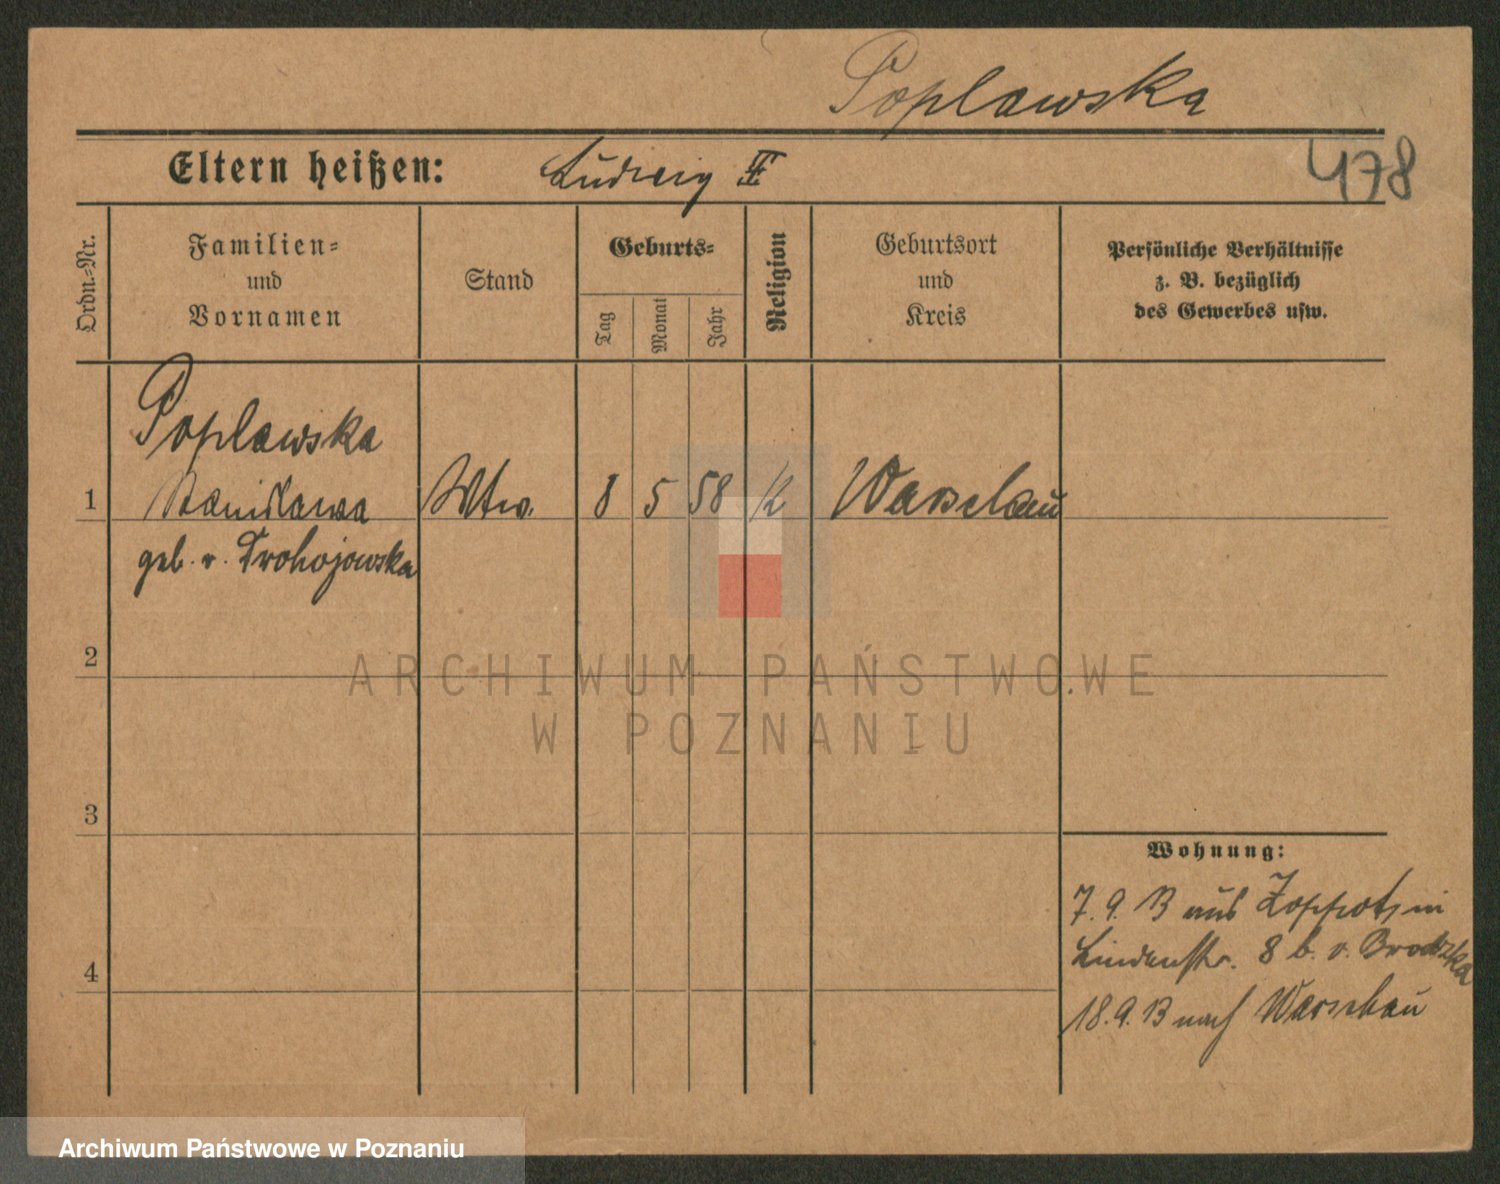 Poplawska
Eltern heißen: Ludwig
478
Ordn.=Nr.
Familien=
und
Vornamen
Stand
Geburts=
Tag
Monat
Jahr
Religion
Geburtsort
und
Kreis
Persönliche Verhältnisse
z. B. bezüglich
des Gewerbes usw.
Poplawska
1 Stanislawa Wtw. 8 5 58 k Warschau
geb. v. Trohojowska
2
ARCHIWUM PAŃSTWOWE
W POZNANIU
3
Wohnung:
7.9.13 aus Zoppot, in
Lindenstr. 8 b. v. Brodzka
4
18.9.13 nach Warschau
Archiwum Państwowe w Poznaniu